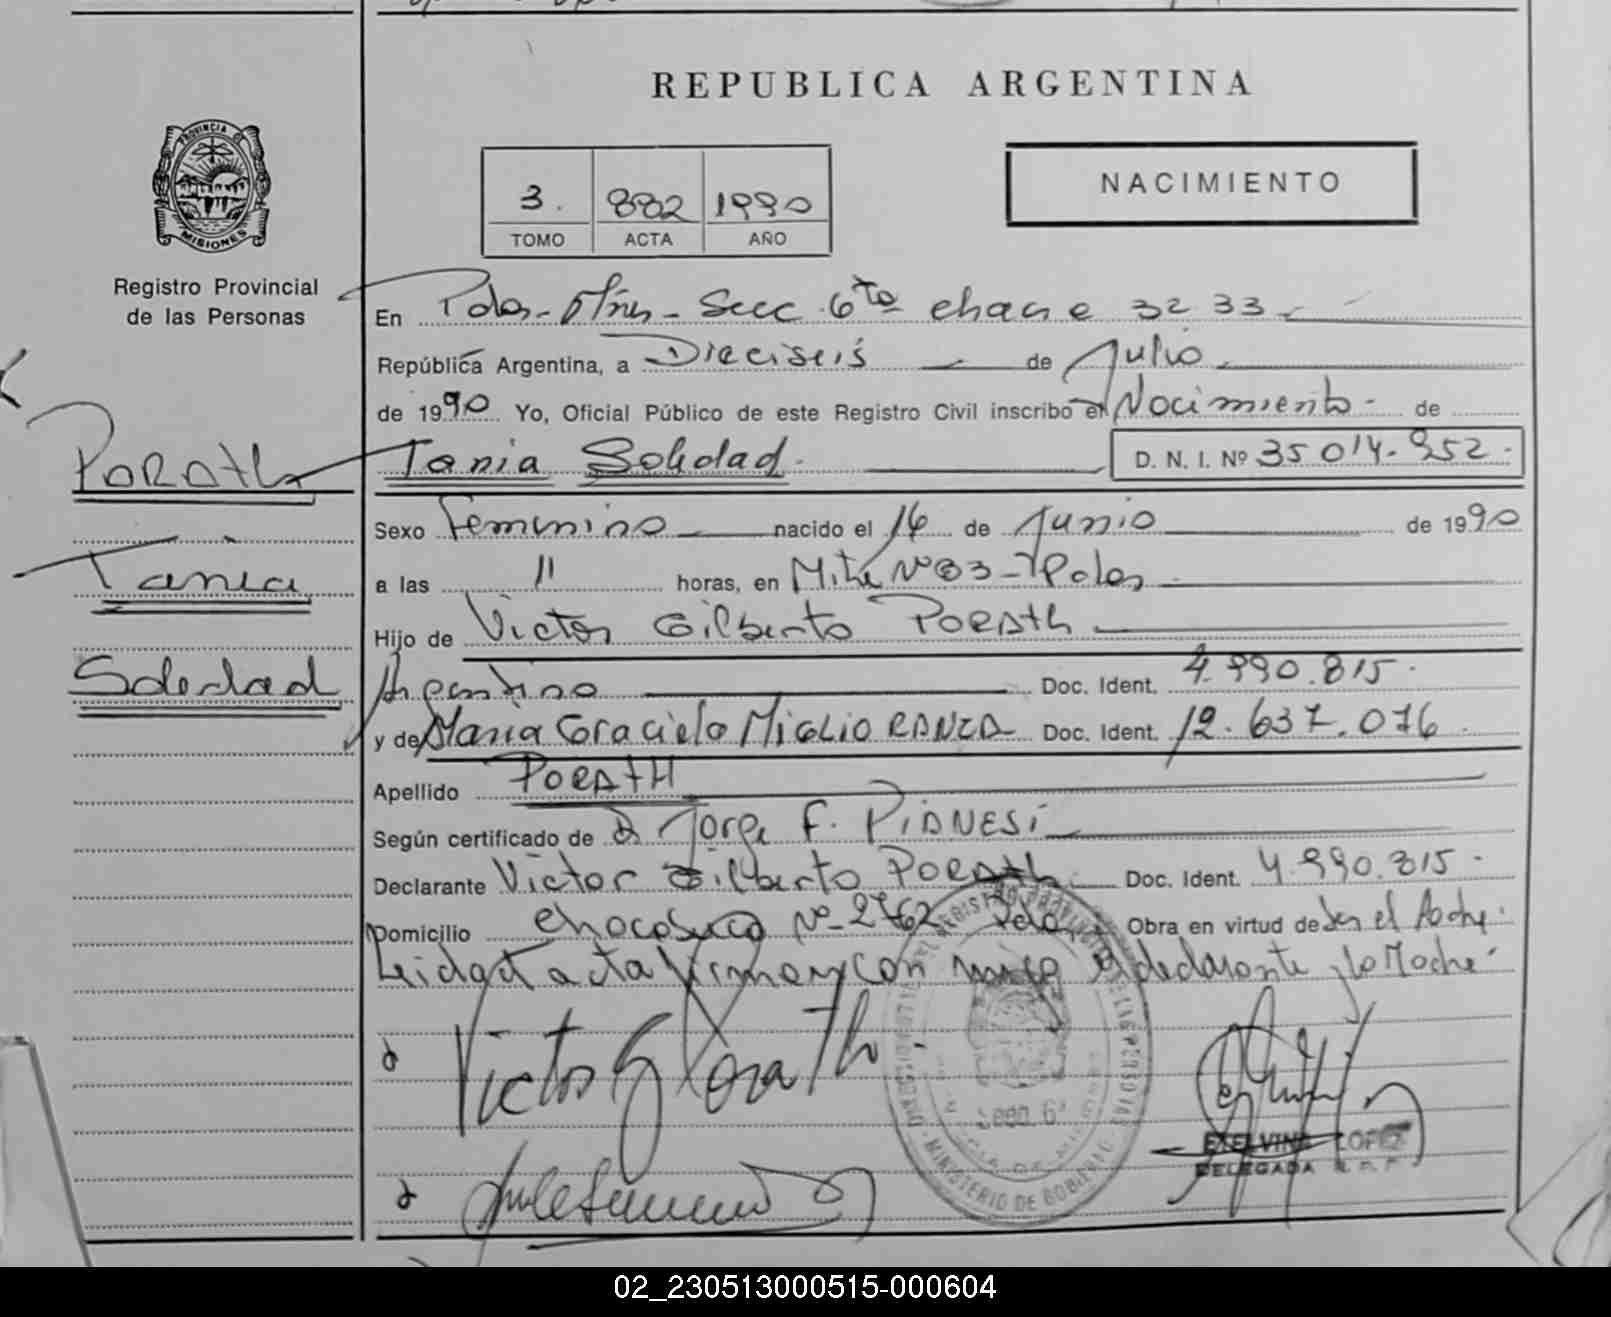 REPUBLICA ARGENTINA
PROVINCIA DE
MISIONES
Registro Provincial
de las Personas
NACIMIENTO
3. 882 1990
TOMO ACTA AÑO
En Pdas - Mnes - Secc 6ta chacra 32 33
República Argentina, a Dieciseis de Julio
de 1990 Yo, Oficial Público de este Registro Civil inscribo el Nacimiento de
PORATH
Tania Soledad D. N. I. Nº 35 014.952
Sexo Femenino nacido el 14 de Junio de 1990
Tania
a las 11 horas, en Mitre Nº 83 - Pdas
Hijo de Victor Gilberto PORATH
Soledad
Argentino Doc. Ident. 4.990.815
y de Maria Graciela MIGLIORANZA Doc. Ident. 12.637.076
Apellido PORATH
Según certificado de Jorge F. PIANESI
Declarante Victor Gilberto PORATH Doc. Ident. 4.990.815
Domicilio Chacabuco Nº 2762 Pdas Obra en virtud de ser el Padre
Leida el acta firman con migo el declarante y la Madre
Victor G Porath
Secc. 6ª
MINISTERIO DE GOBIERNO
LOPEZ
DELEGADA R. P. P.
02_230513000515-000604